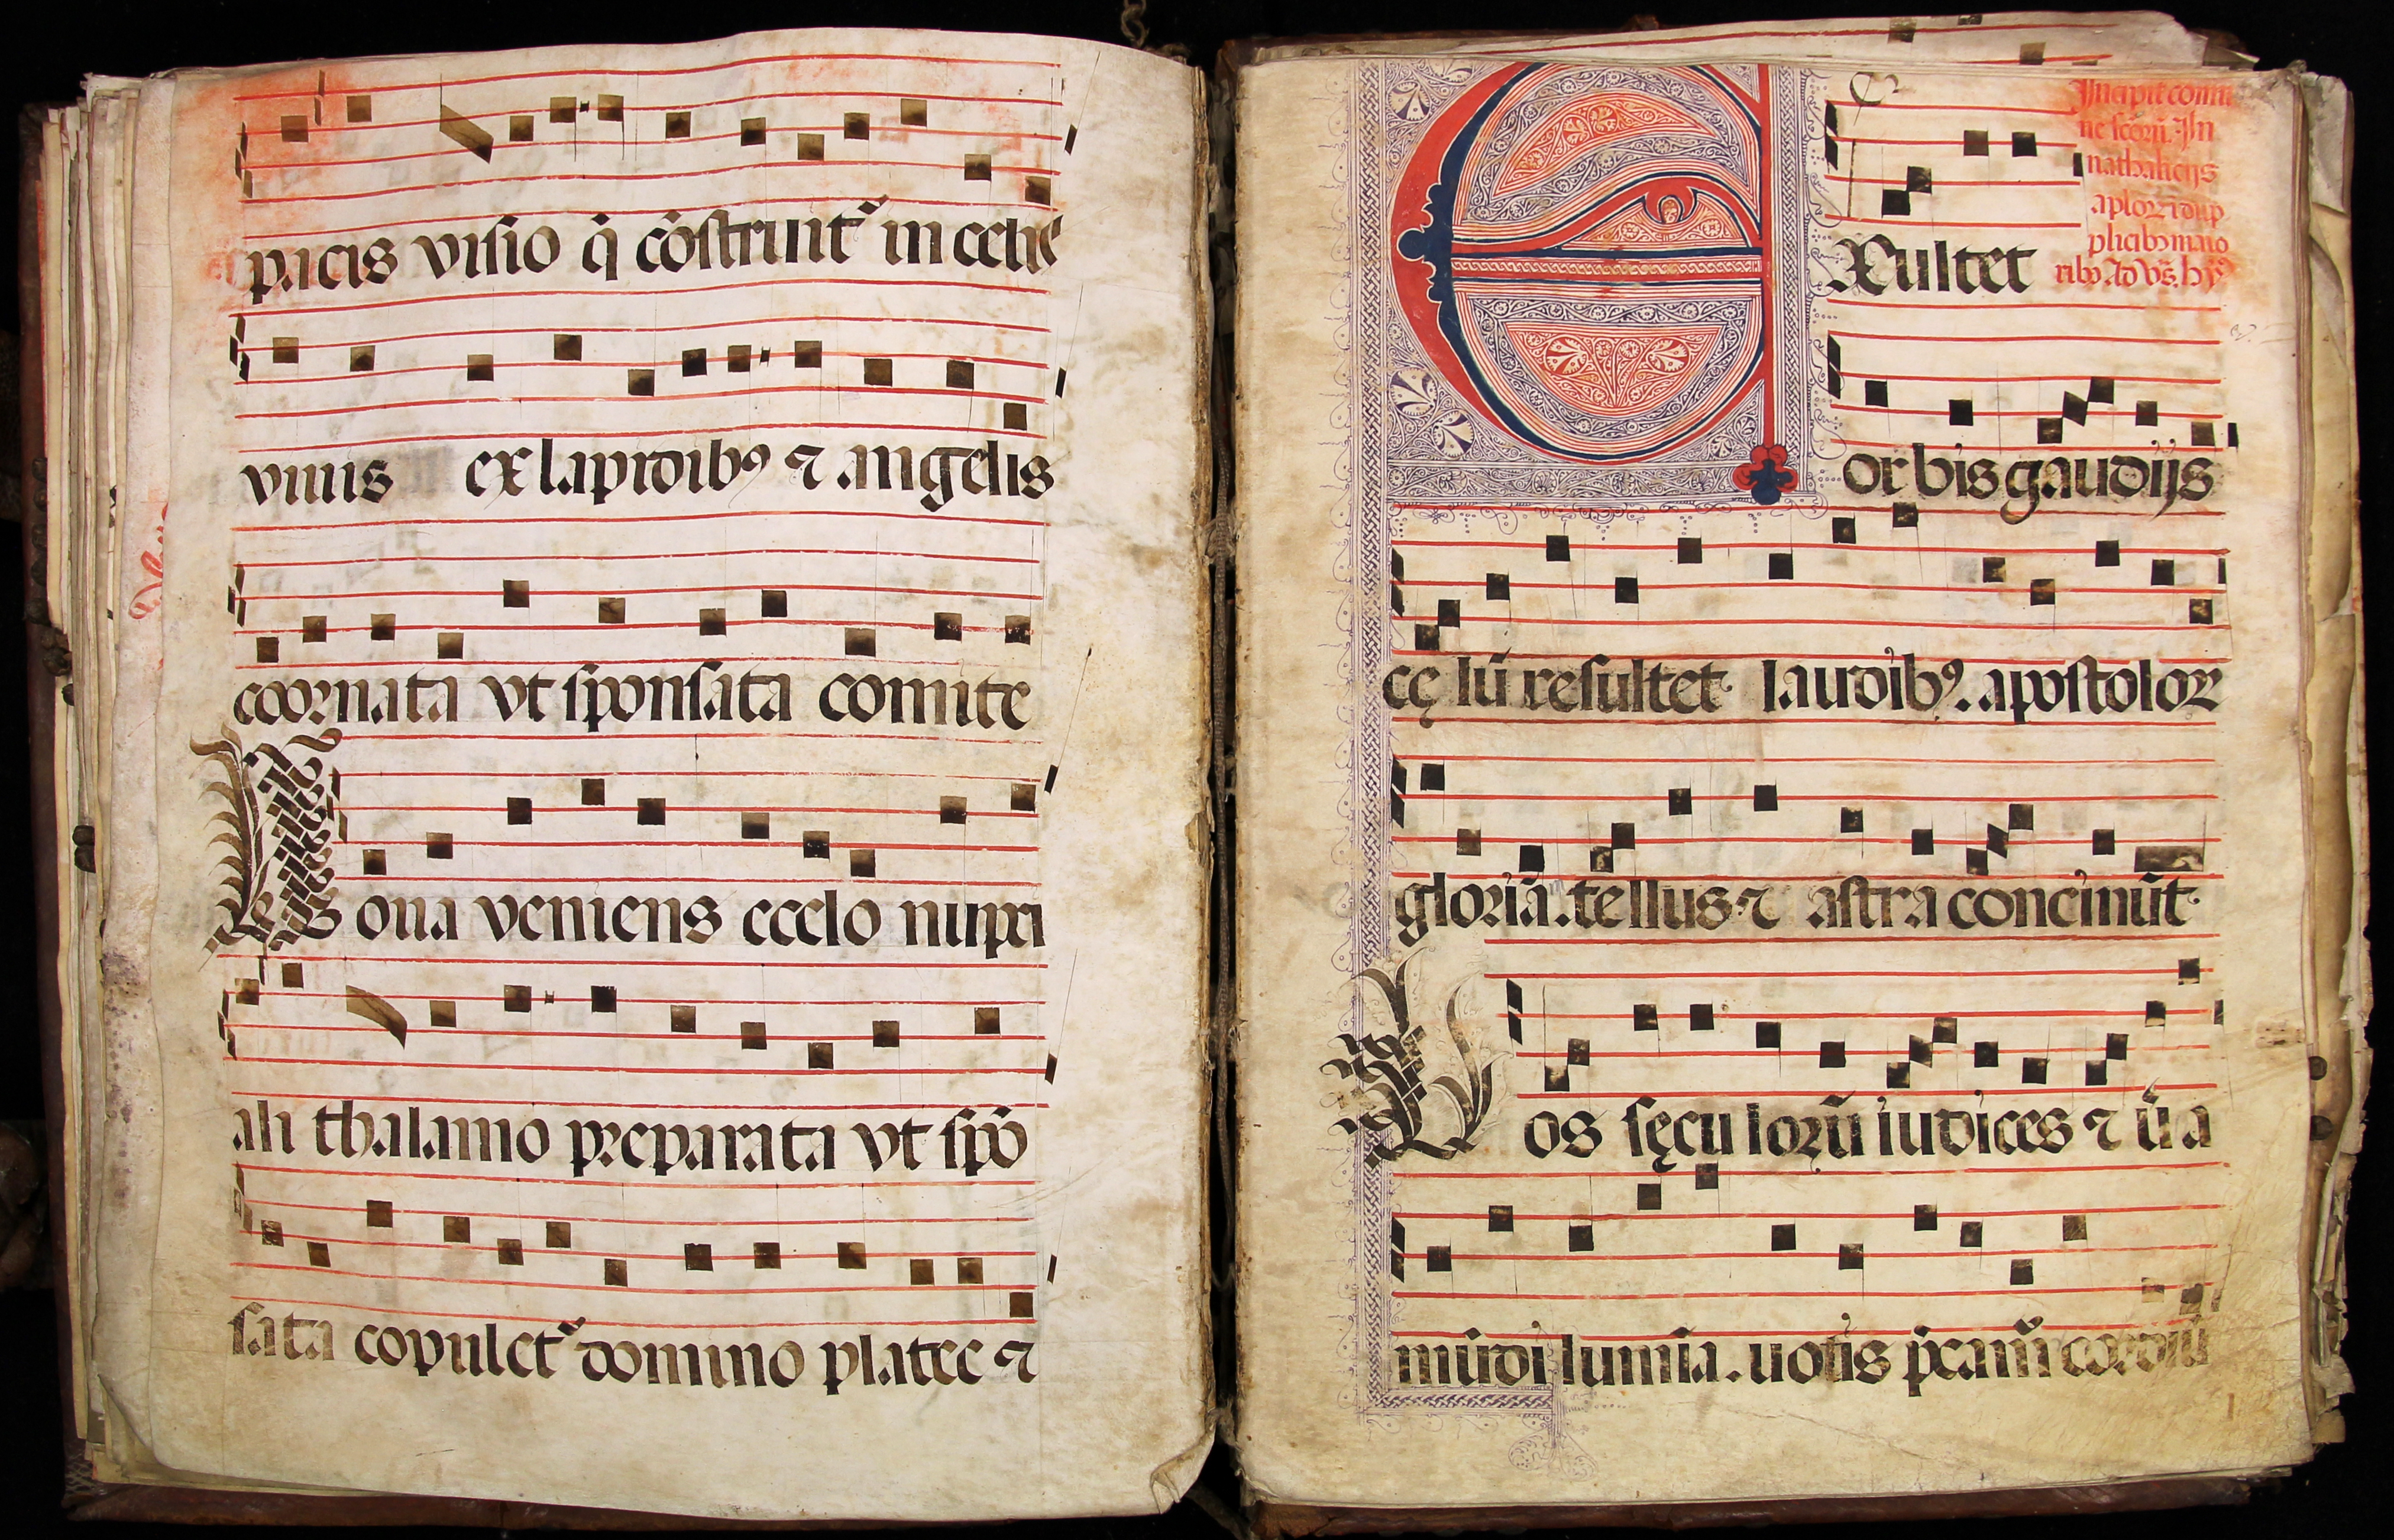 pacis visio q̄ cōstruit᷑ in celis
viuis ex lapidibꝰ ⁊ angelis
coornata vt sponsata comite
N oua veniens ecelo nupci
ali thalamo preparata vt spō
sata copulet᷑ domino platee ⁊
Incipit comu
ne scōrū. In
nathalicijs
aploꝝ ⁊ dup
plicibꝫ maio
ribꝫ Ad vēs. hỹ
E Xultet
orbis gaudijs
cę lū resultet laudibꝰ. apostoloꝝ
gloriā. tellus ⁊ astra concinūt
V os sęcu lorū iudices ⁊ ūa
mūdi lumīa. uotis p̄cam̄ cordiū